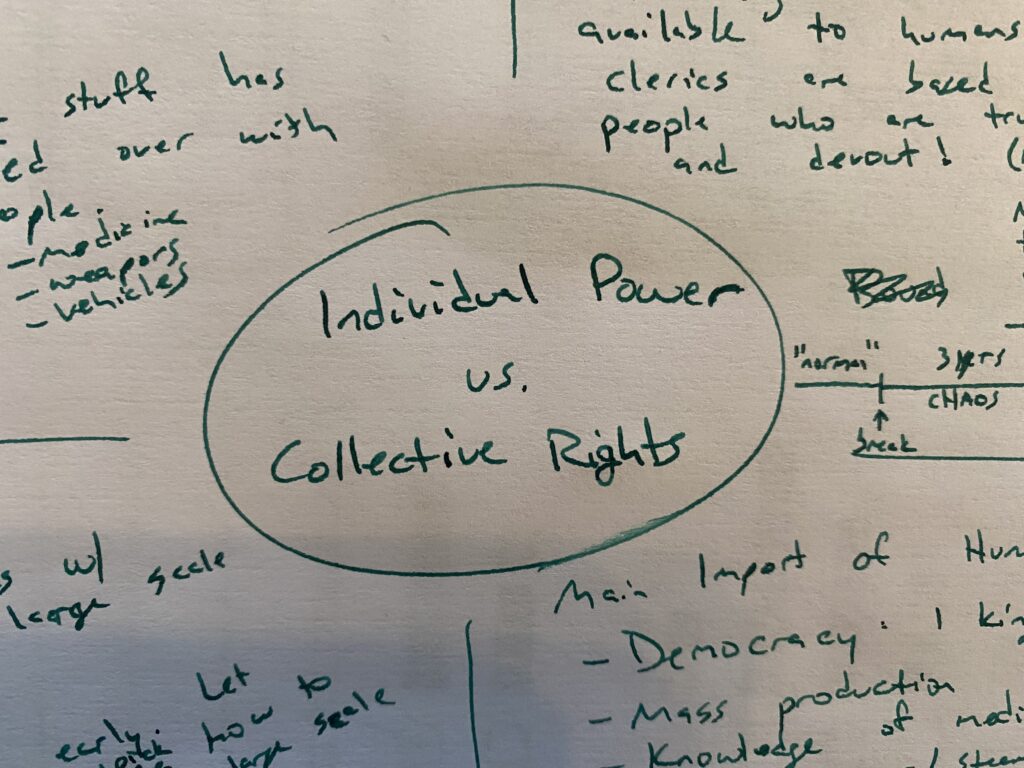 stuff has
ed over with
ople.
- medicine
- weapons
- vehicles
available to humans
clerics are based
people who are tru
and devout! (
Individual Power
vs.
Collective Rights
"normal"
3 yrs
CHAOS
break
s w/ scale
large
Let to
early. how to
large scale
Main Import of Hum
- Democracy: 1 kin
- Mass production
- Knowledge of medi
/ steam